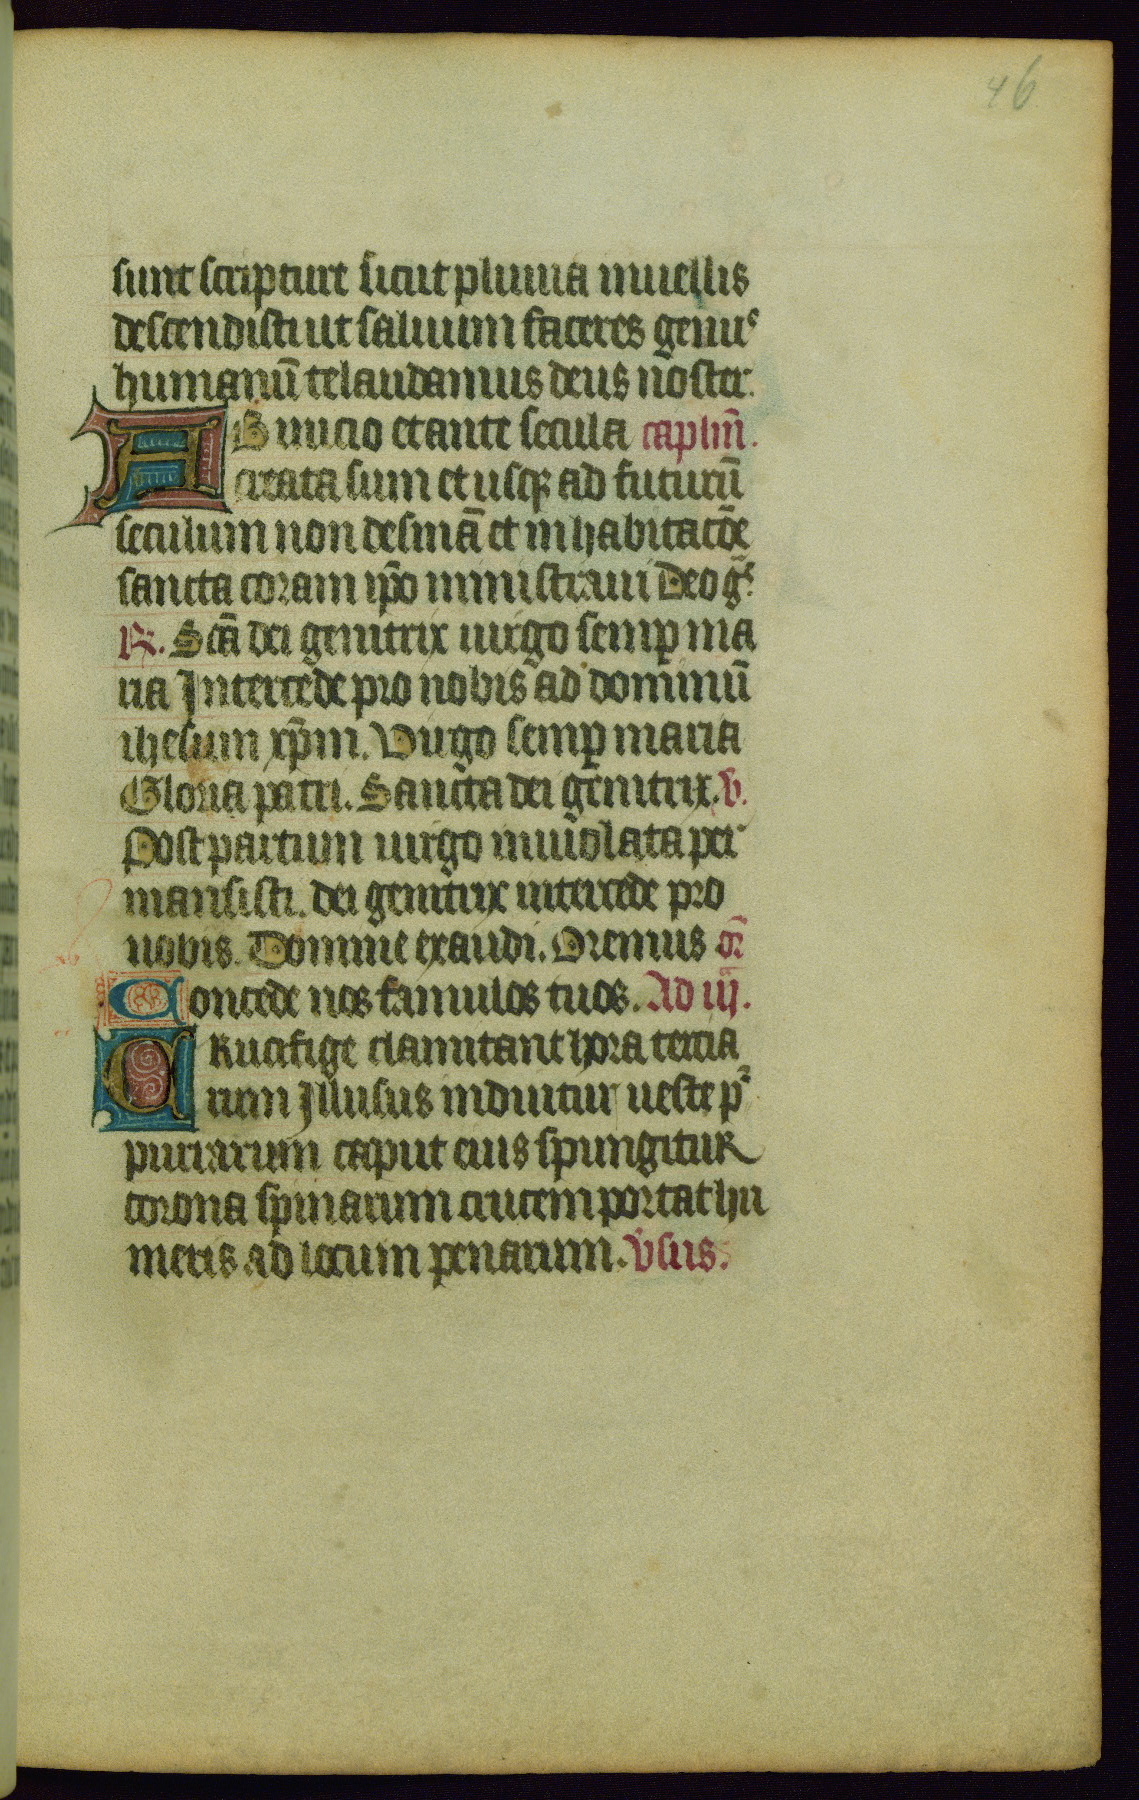 46
sunt scripture sicut pluuia in uellis
descendisti ut saluum faceres genus
humanū te laudamus deus noster.
AB inicio et ante secula caplm̄.
creata sum et usqꝫ ad futurū
seculum non desinā et in habitacōe
sancta coram ip̄o ministraui Deo gͣs
R. Scā dei genitrix uirgo semꝑ ma
ria Intercede pro nobis ad dominū
ihesum xp̄m. Virgo semꝑ maria
Gloria patri. Sancta dei genitrix. v.
Post partum uirgo inuiolata per
mansisti. dei genitrix intercede pro
nobis. Domine exaudi. Oremus or̄
Concede nos famulos tuos. Ad iij.
CRucifige clamitant hora tercia
rum Illusus induitur ueste pͬ
purarum caput eius spungitur
corona spinarum crucem portat hu
meris ad locum penarum. Vsus.